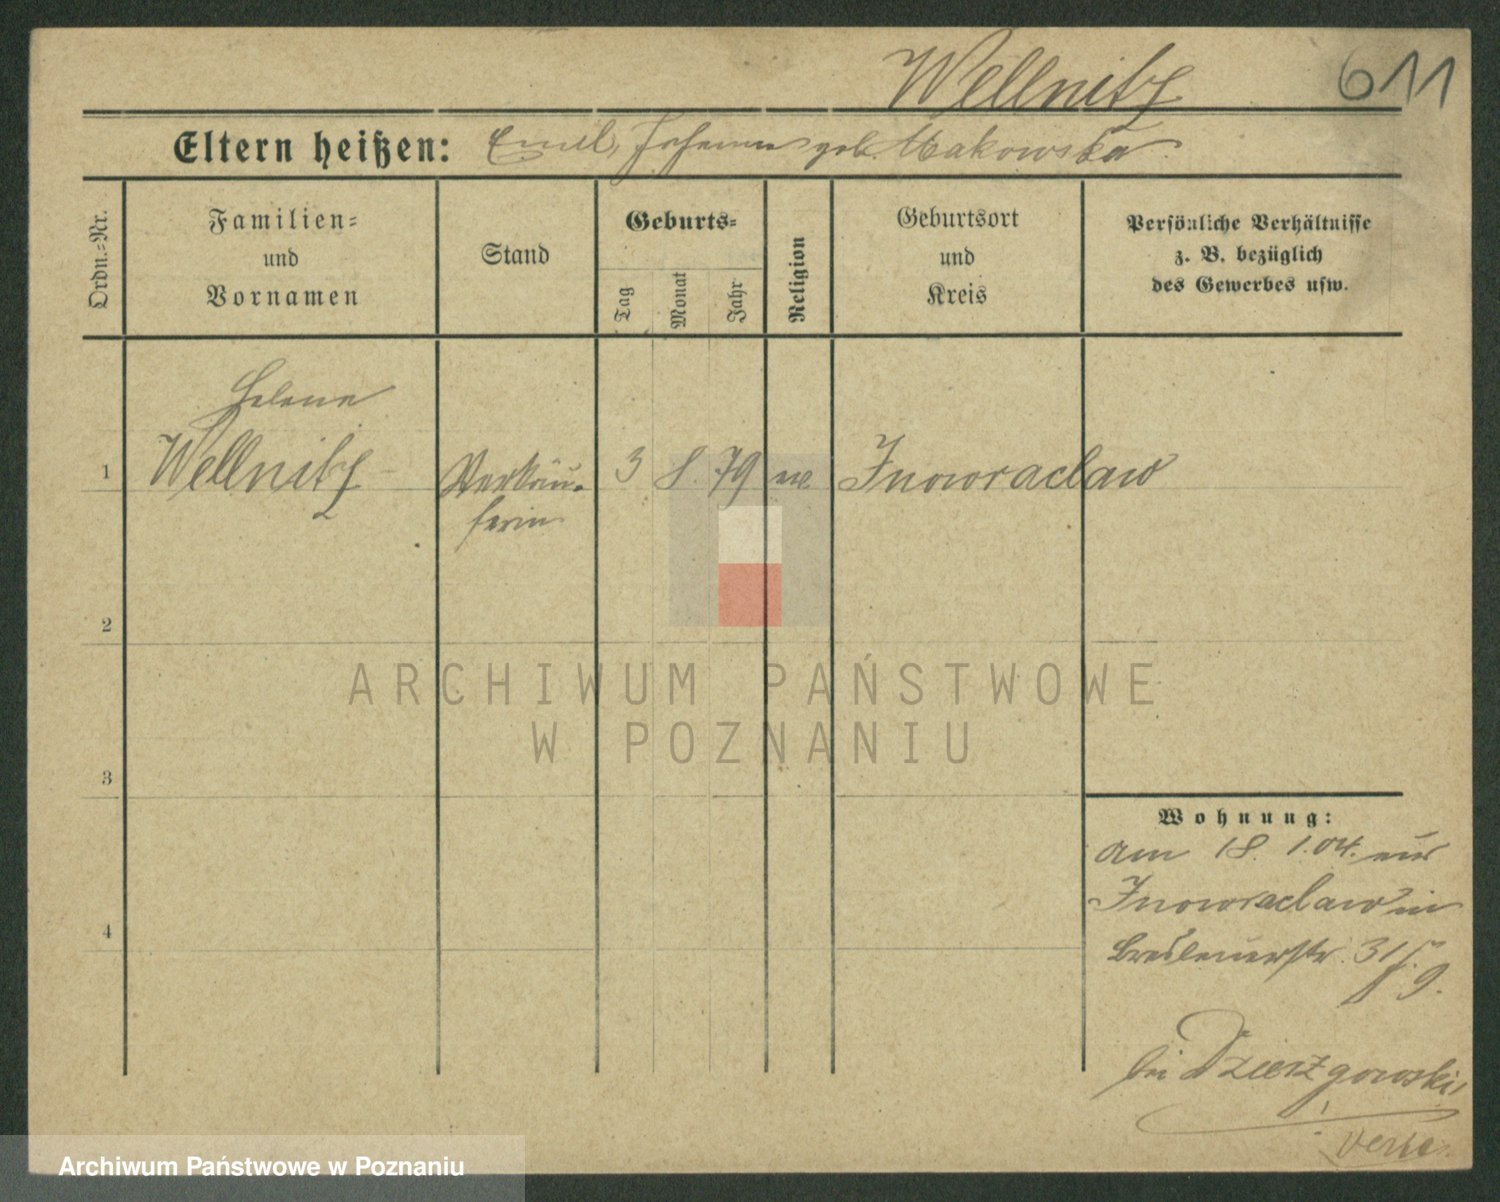 Wellnitz
611
Eltern heißen: Emil, Johanna geb. Makowska
Ordn.=Nr.
Familien=
und
Vornamen
Stand
Geburts=
Tag
Monat
Jahr
Religion
Geburtsort
und
Kreis
Persönliche Verhältnisse
z. B. bezüglich
des Gewerbes usw.
Helene
1 Wellnitz Verkäu- 3 8. 79 Inowraclaw
ferin
2
3
4
Wohnung:
am 18. 1. 04. aus
Inowraclaw in
Breslauerstr. 31
9.
bei Dzierzgowski
ARCHIWUM PAŃSTWOWE
W POZNANIU
Archiwum Państwowe w Poznaniu